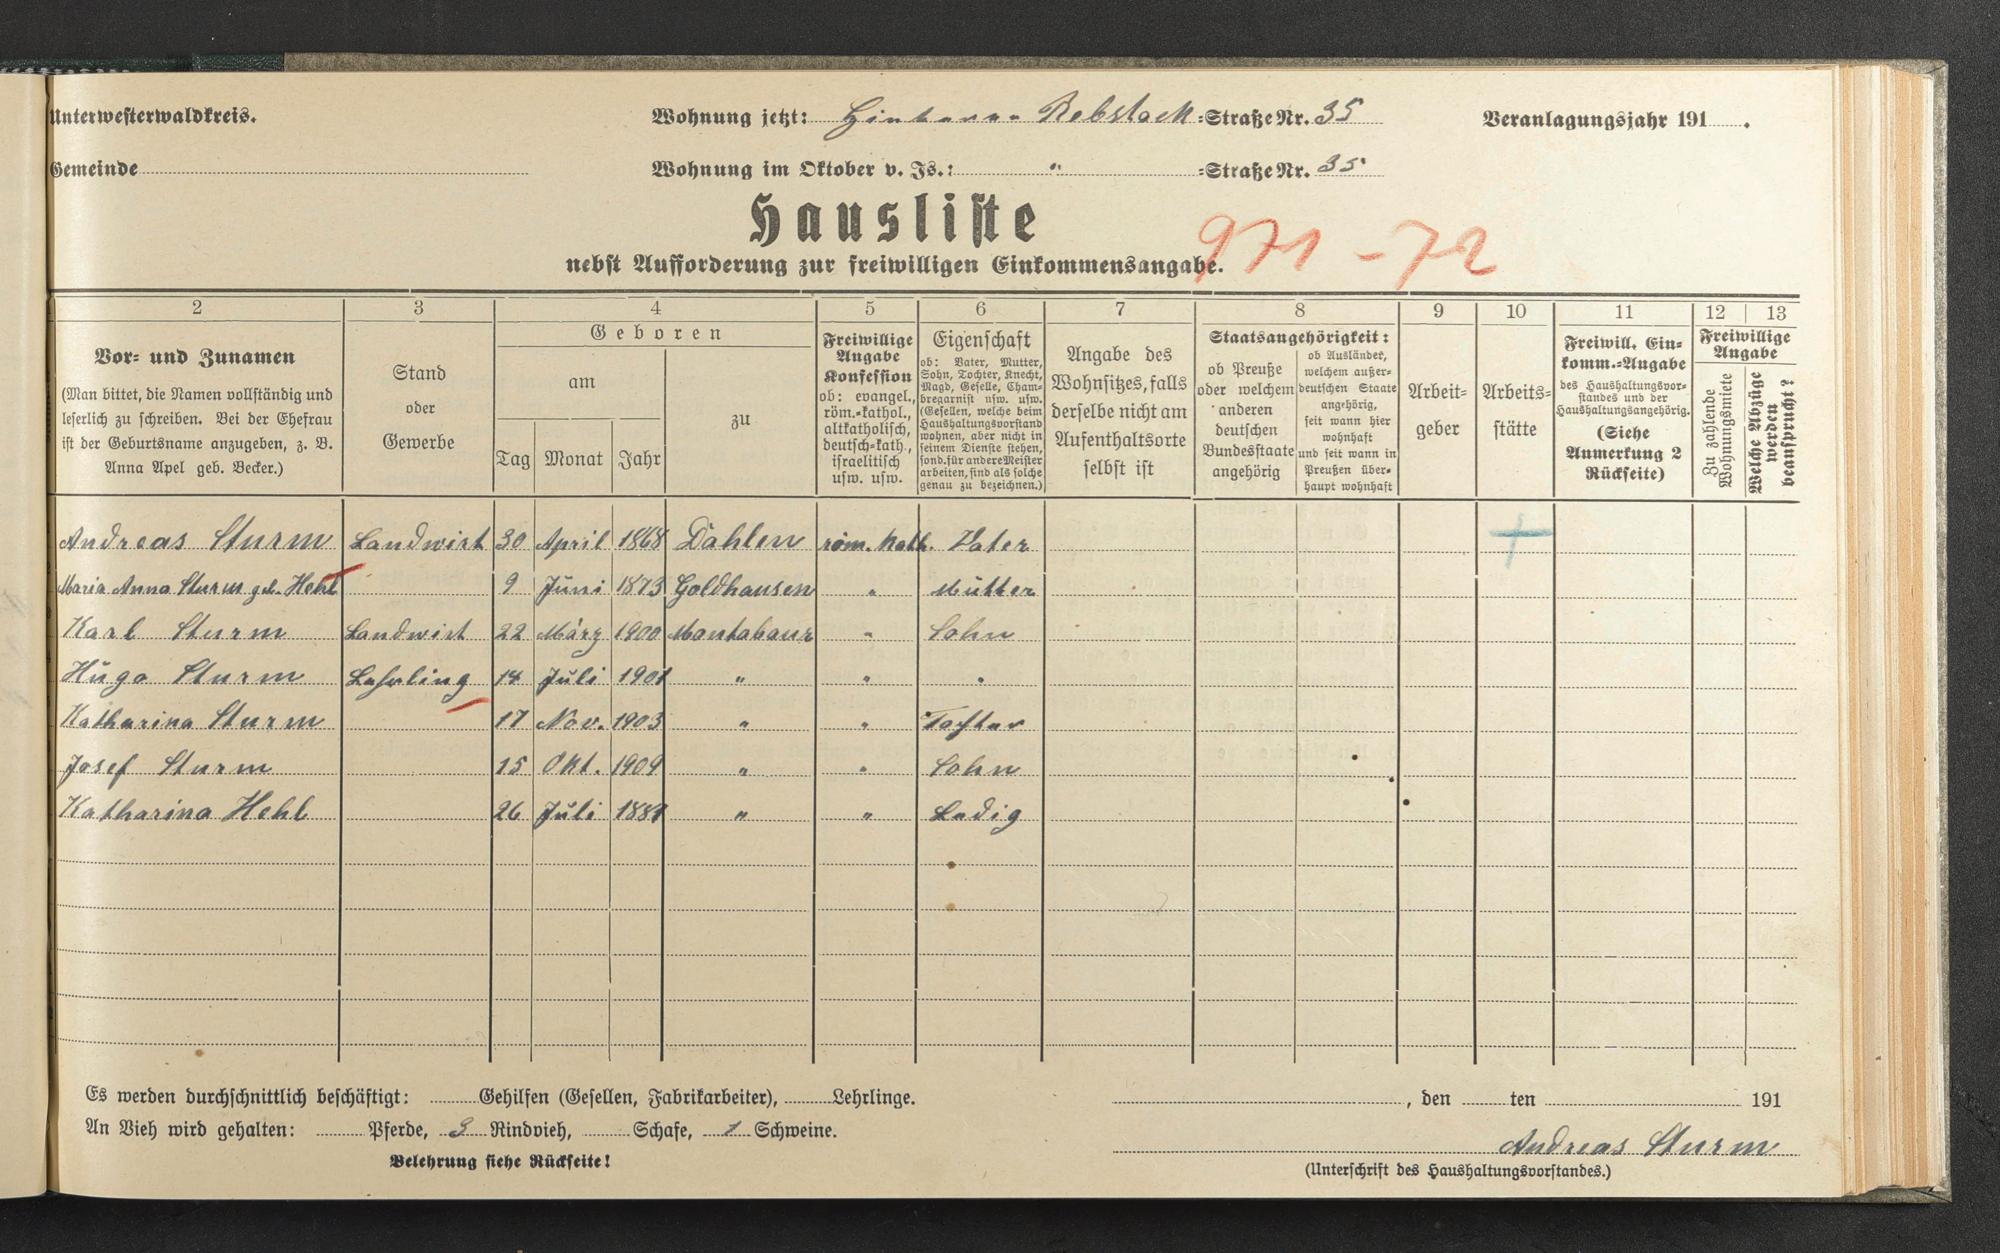 Unterwesterwaldkreis.
Wohnung jetzt: Hinterer Rebstock =Straße Nr. 35
Veranlagungsjahr 191 .
Gemeinde
Wohnung im Oktober v. Js.: " =Straße Nr. 35
Hausliste
nebst Aufforderung zur freiwilligen Einkommensangabe.
971-72
2 3 4 5 6 7 8 9 10 11 12 13
Vor- und Zunamen
(Man bittet, die Namen vollständig und
leserlich zu schreiben. Bei der Ehefrau
ist der Geburtsname anzugeben, z. B.
Anna Apel geb. Becker.)
Stand
oder
Gewerbe
Geboren
am
Tag Monat Jahr
zu
Freiwillige
Angabe
Konfession
ob: evangel.,
röm.-kathol.,
altkatholisch,
deutsch-kath.,
israelitisch
usw. usw.
Eigenschaft
ob: Vater, Mutter,
Sohn, Tochter, Knecht,
Magd, Geselle, Cham-
bregarnist usw. usw.
(Gesellen, welche beim
Haushaltungsvorstand
wohnen, aber nicht in
seinem Dienste stehen,
sond. für andere Meister
arbeiten, sind als solche
genau zu bezeichnen.)
Angabe des
Wohnsitzes, falls
derselbe nicht am
Aufenthaltsorte
selbst ist
Staatsangehörigkeit:
ob Preuße
oder welchem
anderen
deutschen
Bundesstaate
angehörig
ob Ausländer,
welchem außer-
deutschen Staate
angehörig,
seit wann hier
wohnhaft
und seit wann in
Preußen über-
haupt wohnhaft
Arbeit-
geber
Arbeits-
stätte
Freiwill. Ein-
komm.-Angabe
des Haushaltungsvor-
standes und der
Haushaltungsangehörig.
(Siehe
Anmerkung 2
Rückseite)
Freiwillige
Angabe
Zu zahlende
Wohnungsmiete
Welche Abzüge
werden
beansprucht?
Andreas Sturm Landwirt 30 April 1868 Dahlen röm. kath. Vater
Maria Anna Sturm geb. Hehl 9 Juni 1873 Goldhausen " Mutter
Karl Sturm Landwirt 22 März 1900 Montabaur " Sohn
Hugo Sturm Lehrling 14 Juli 1901 " " "
Katharina Sturm 17 Nov. 1903 " " Tochter
Josef Sturm 15 Okt. 1909 " " Sohn
Katharina Hehl 26 Juli 1881 " " Ledig
Es werden durchschnittlich beschäftigt: Gehilfen (Gesellen, Fabrikarbeiter), Lehrlinge.
, den ten 191
An Vieh wird gehalten: Pferde, 3 Rindvieh, Schafe, 1 Schweine.
Andreas Sturm
Belehrung siehe Rückseite!
(Unterschrift des Haushaltungsvorstandes.)